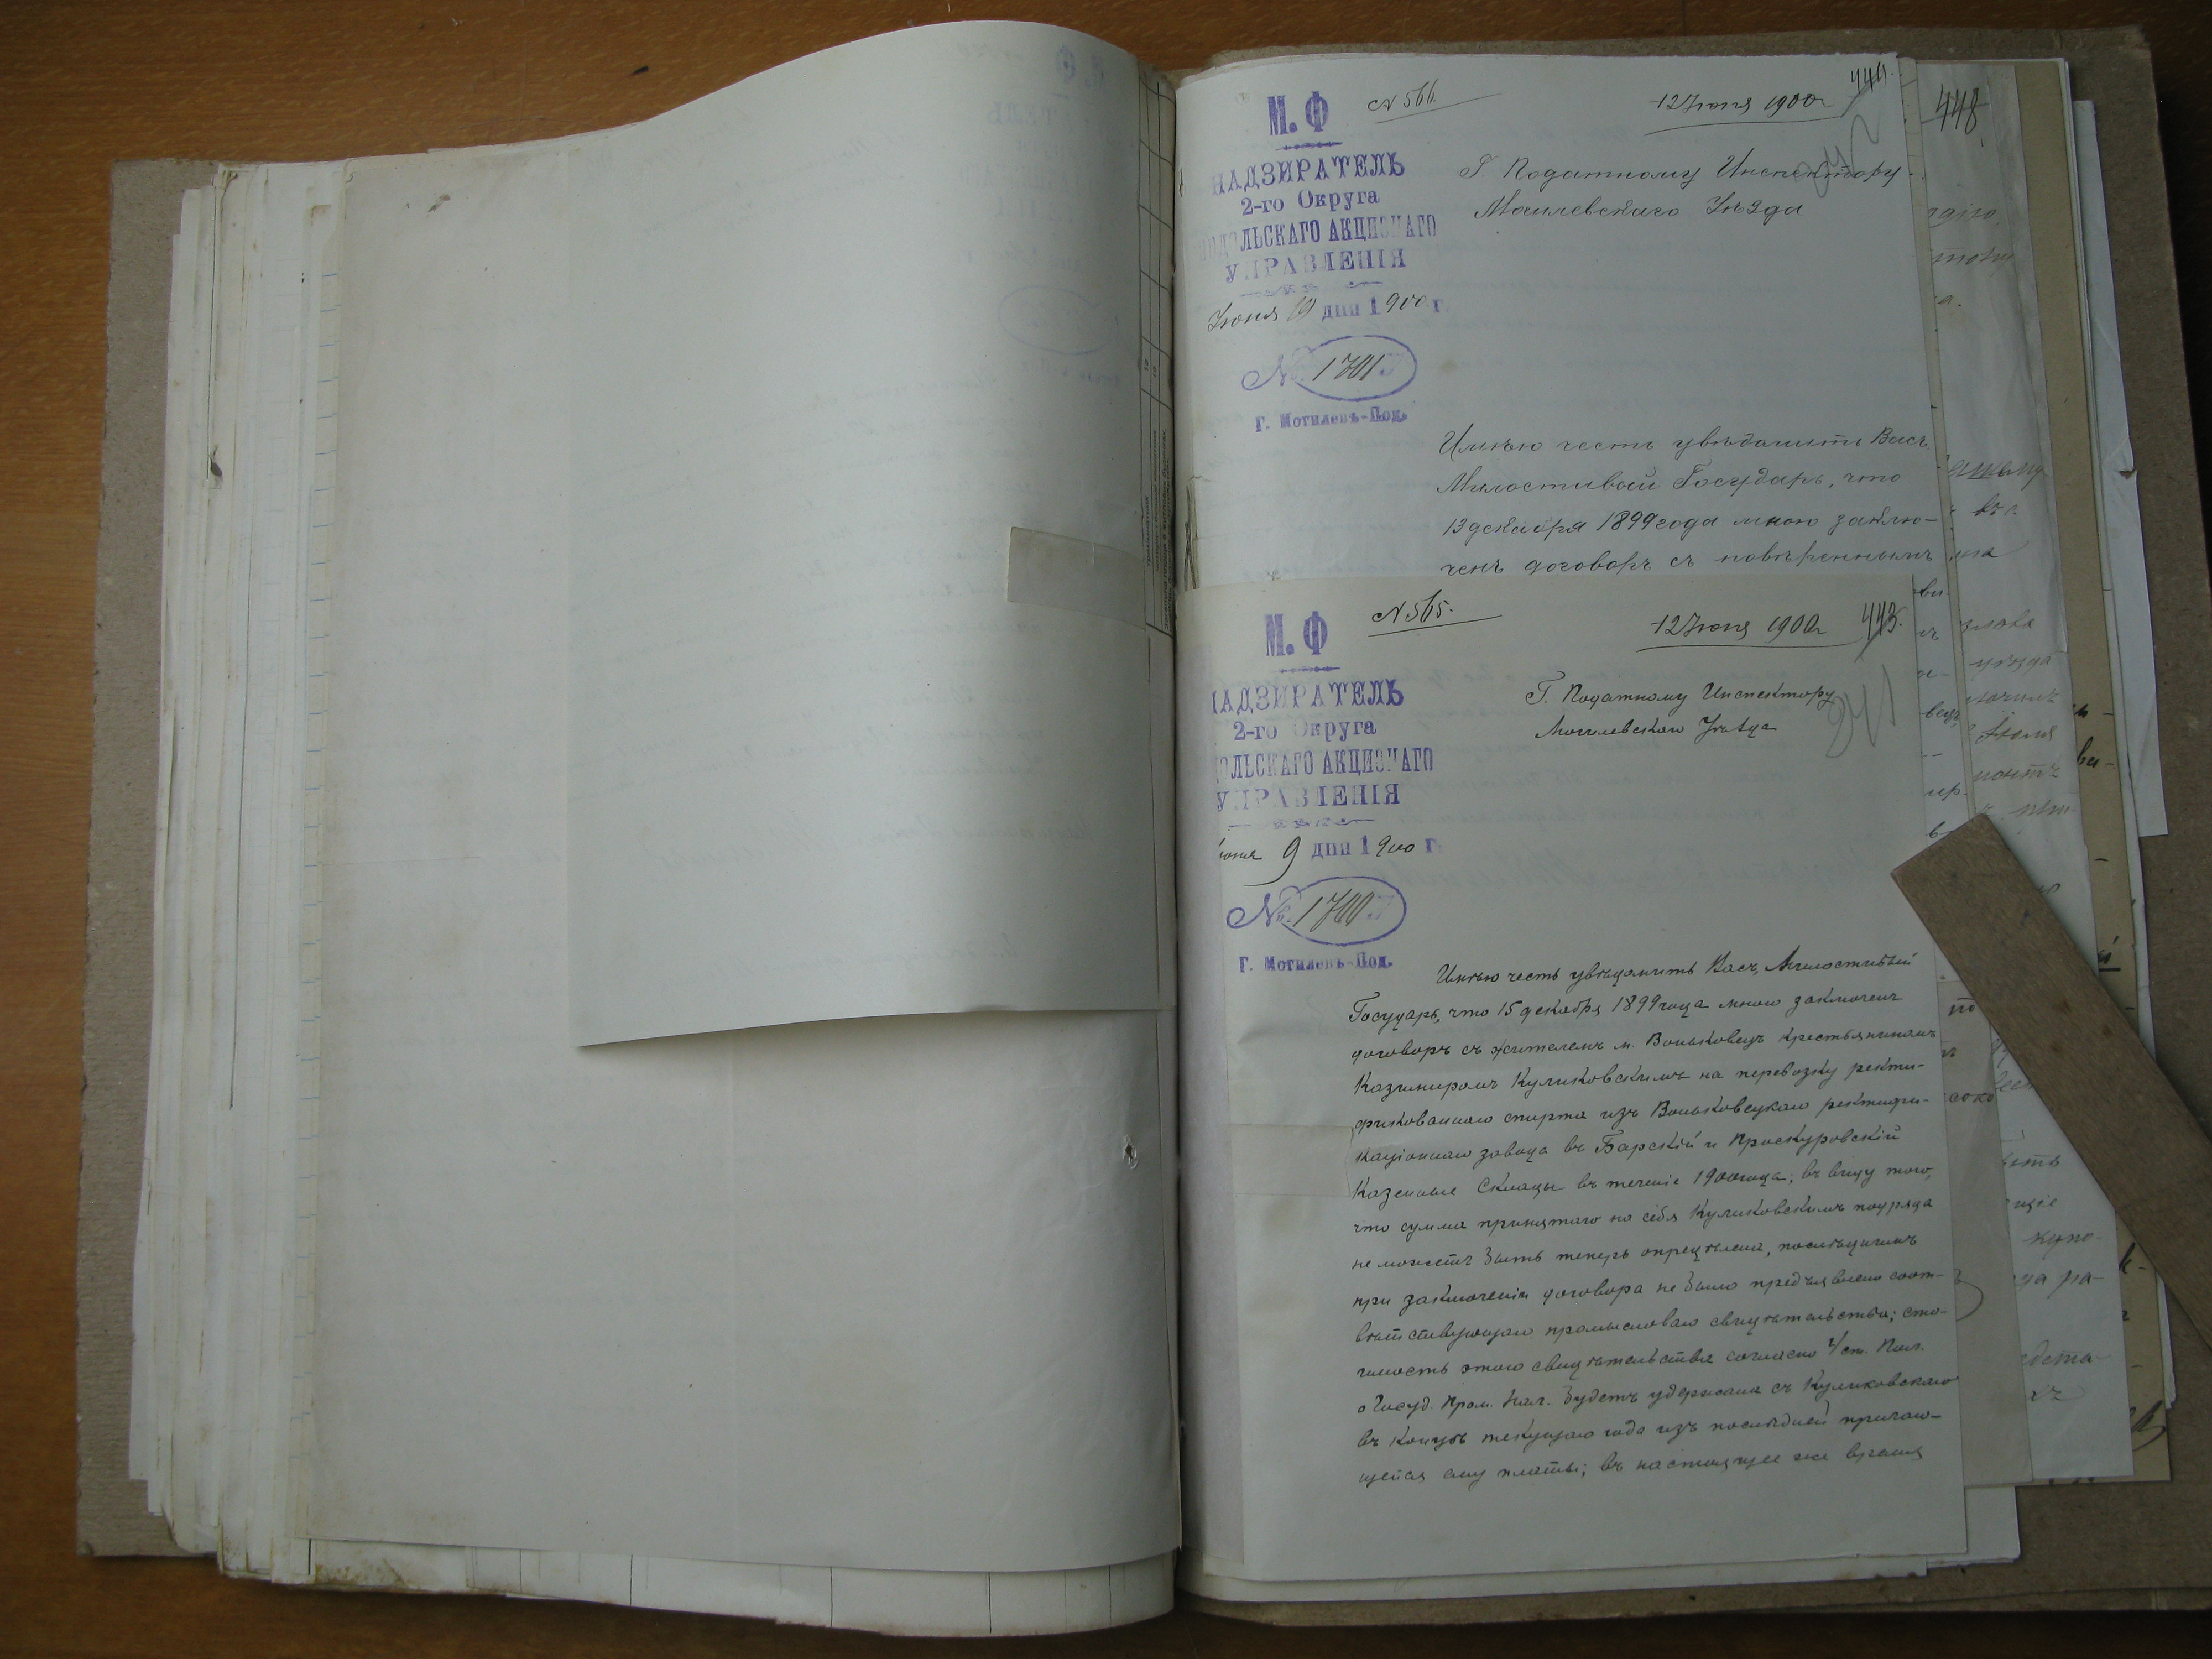 М. Ф
№ 566.
12 Июня 1900 г
444.
448
НАДЗИРАТЕЛЬ
2-го Округа
ПОДОЛЬСКАГО АКЦИЗНАГО
УПРАВЛЕНІЯ
Июня 9 дня 1900 г.
№ 1701
Г. Могилевъ-Под.
Г. Податному Инспектору
Могилевскаго Уѣзда
Имѣю честь увѣдомить Васъ
Милостивый Государь, что
13 декабря 1899 года мною заклю-
ченъ договоръ съ повѣреннымъ
М. Ф
№ 565.
12 Июня 1900 г
443.
341
АДЗИРАТЕЛЬ
2-го Округа
ОЛЬСКАГО АКЦИЗНАГО
УПРАВЛЕНІЯ
юня 9 дня 1900 г.
№ 1700
Г. Могилевъ-Под.
Г. Податному Инспектору
Могилевскаго Уѣзда
Имѣю честь увѣдомить Васъ, Милостивый
Государь, что 15 декабря 1899 года мною заключенъ
договоръ съ жителемъ м. Воньковецъ крестьяниномъ
Казимиромъ Куликовскимъ на перевозку ректи-
фикованнаго спирта изъ Воньковецкаго ректифи-
каціоннаго завода въ Барскій и Проскуровскій
Казенные Склады въ теченіе 1900 года; въ виду того,
что сумма принятаго на себя Куликовскимъ подряда
не можетъ быть теперь опредѣлена, послѣднимъ
при заключеніи договора не было предъявлено соот-
вѣтствующаго промысловаго свидѣтельства; сто-
имость этого свидѣтельства согласно ст. Пол.
о Госуд. Пром. Нал. будетъ удержана съ Куликовскаго
въ концѣ текущаго года изъ послѣдней причитаю-
щейся ему платы; въ настоящее же время